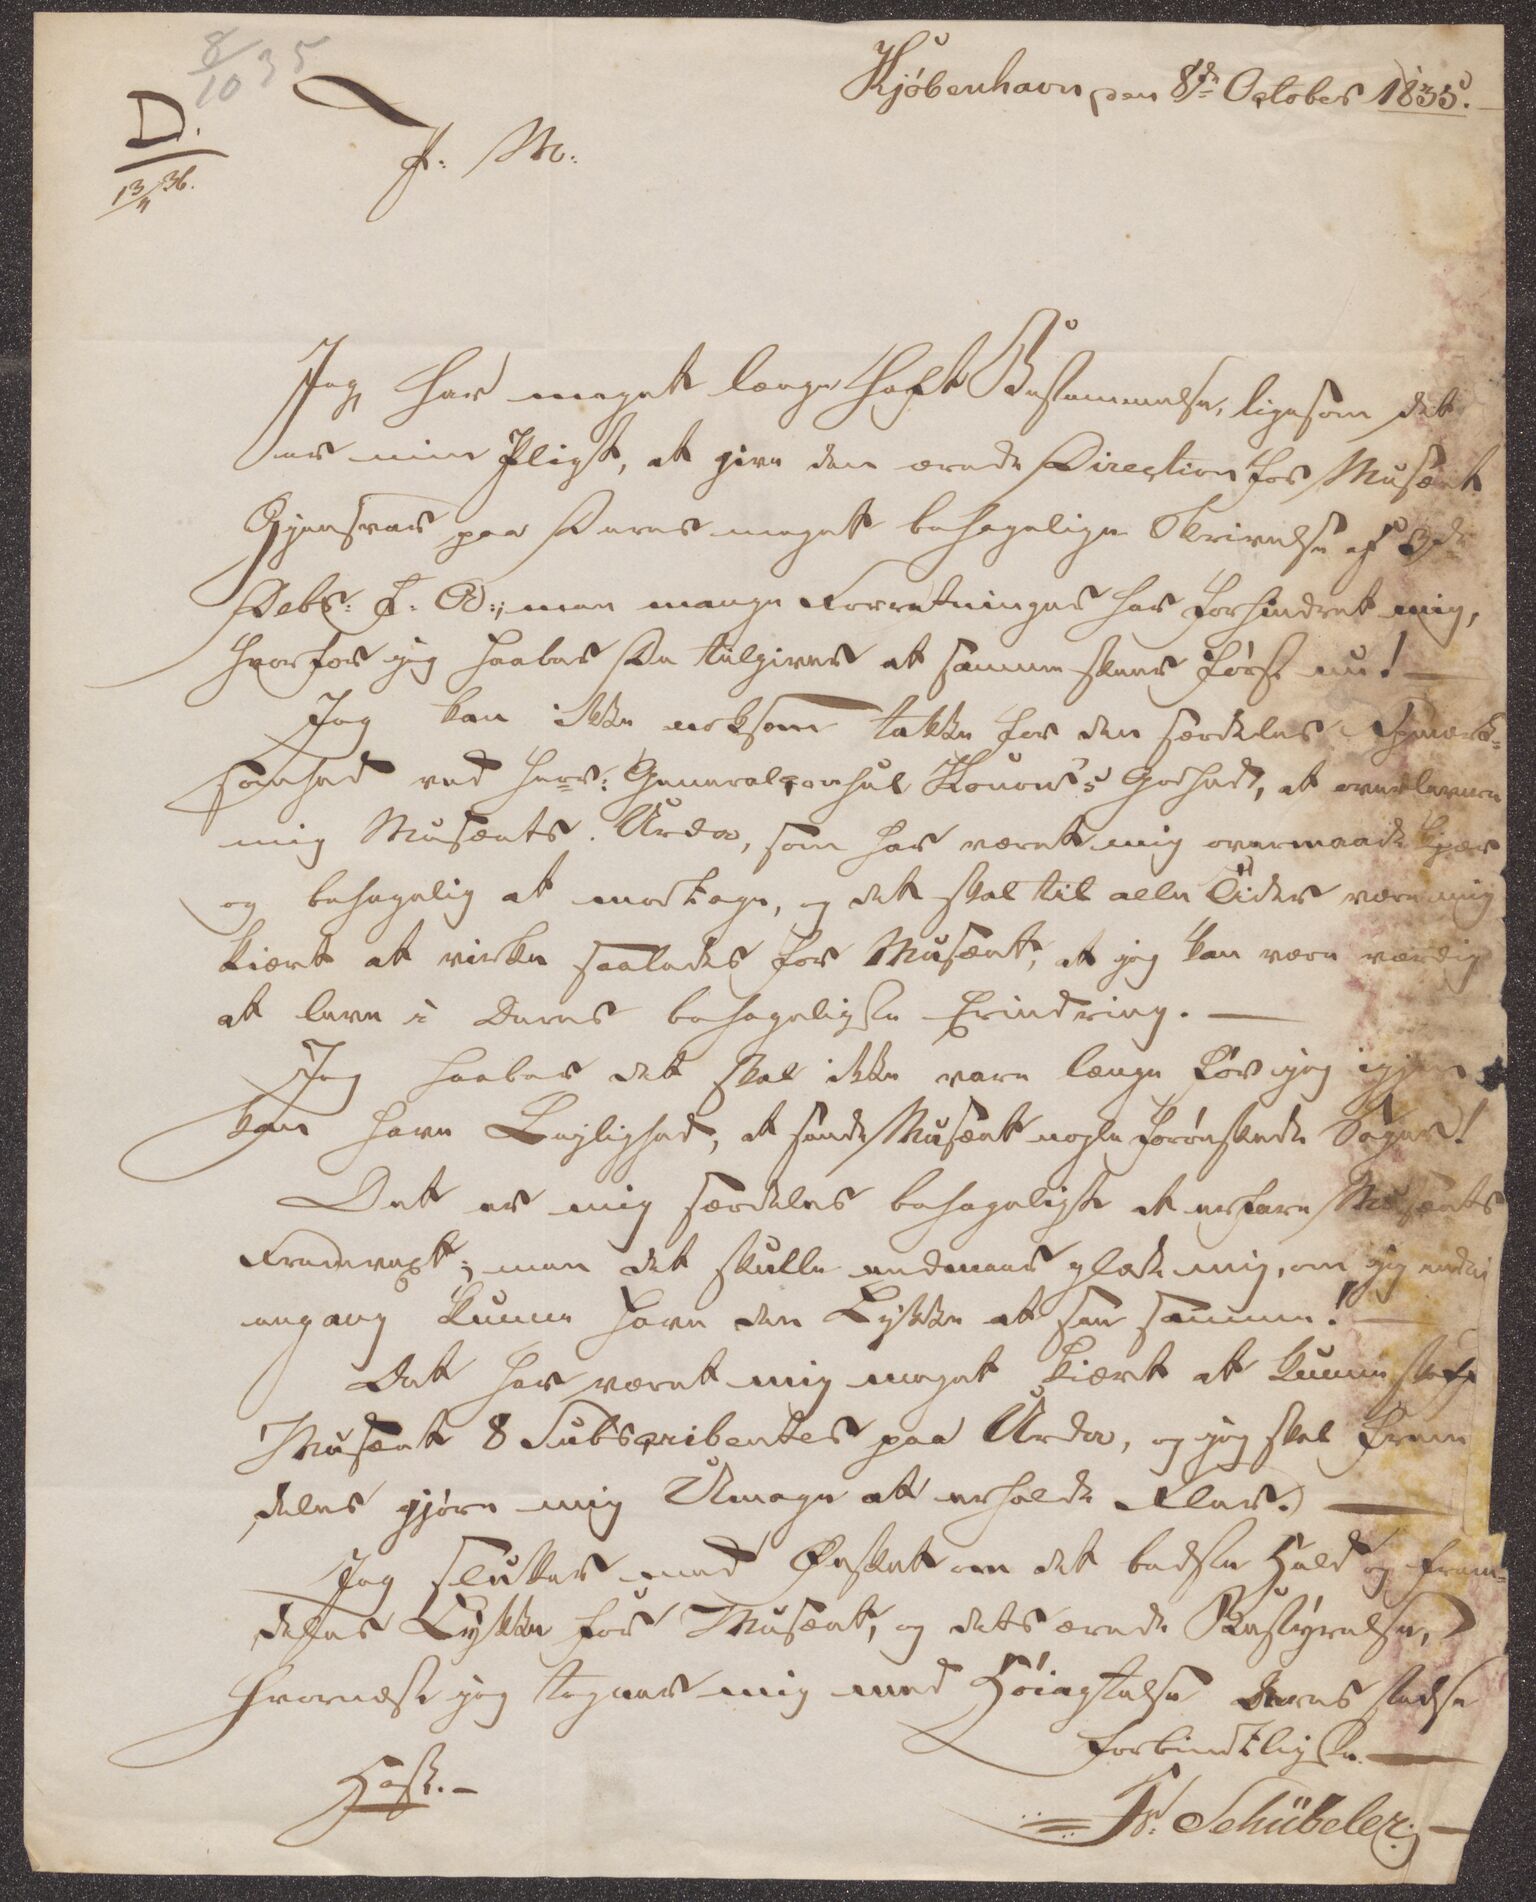 8/10 35
Kjöbenhavn den 8de October 1835.
D.
13/4 36.
P. M.
Jeg har meget længe havt Bestemmelse, ligesom det
er min Pligt, at give den ærede Direction for Musæet
Gjensvar paa Deres meget behagelige Skrivelse af 3de
Debr: f. A:, men mange Forretninger har forhindret mig,
hvorfor jeg haaber De tilgiver at samme skeer först nu! —
Jeg kan ikke noksom takke for den særdeles Opmærk-
somhed ved Herr: Generalconsul Konow's Godhed, at overlevere
mig Musæets Urda, som har været mig overmaade kjær
og behagelig at modtage, og det skal til alle Tider være mig
kiært at virke saaledes for Musæet, at jeg kan være værdig
at leve i Deres behageligste Erindring. —
Jeg haaber det skal ikke vare længe för jeg igjen
kan have Leylighed, at sende Musæet nogle forönskede Sager!
Det er mig særdeles behageligt at erfare Musæets
Fremvext; men det skulle endmeer glæde mig, om jeg endnu
engang kunne have den Lykke at see samme! —
Det har været mig meget kiært at kunne skaffe
Musæet 8 Subscribenter paa Urda, og jeg skal frem
deles gjöre mig Umage at erholde Fleer. —
Jeg slutter med Önsket om det bedste Held og frem-
deles Lykke for Musæet, og dets ærede Bestyrelse,
hvornæst jeg tegner mig med Höiagtelse Deres stedse
forbindtligste. —
Hast. —
Fr. Schübeler. —